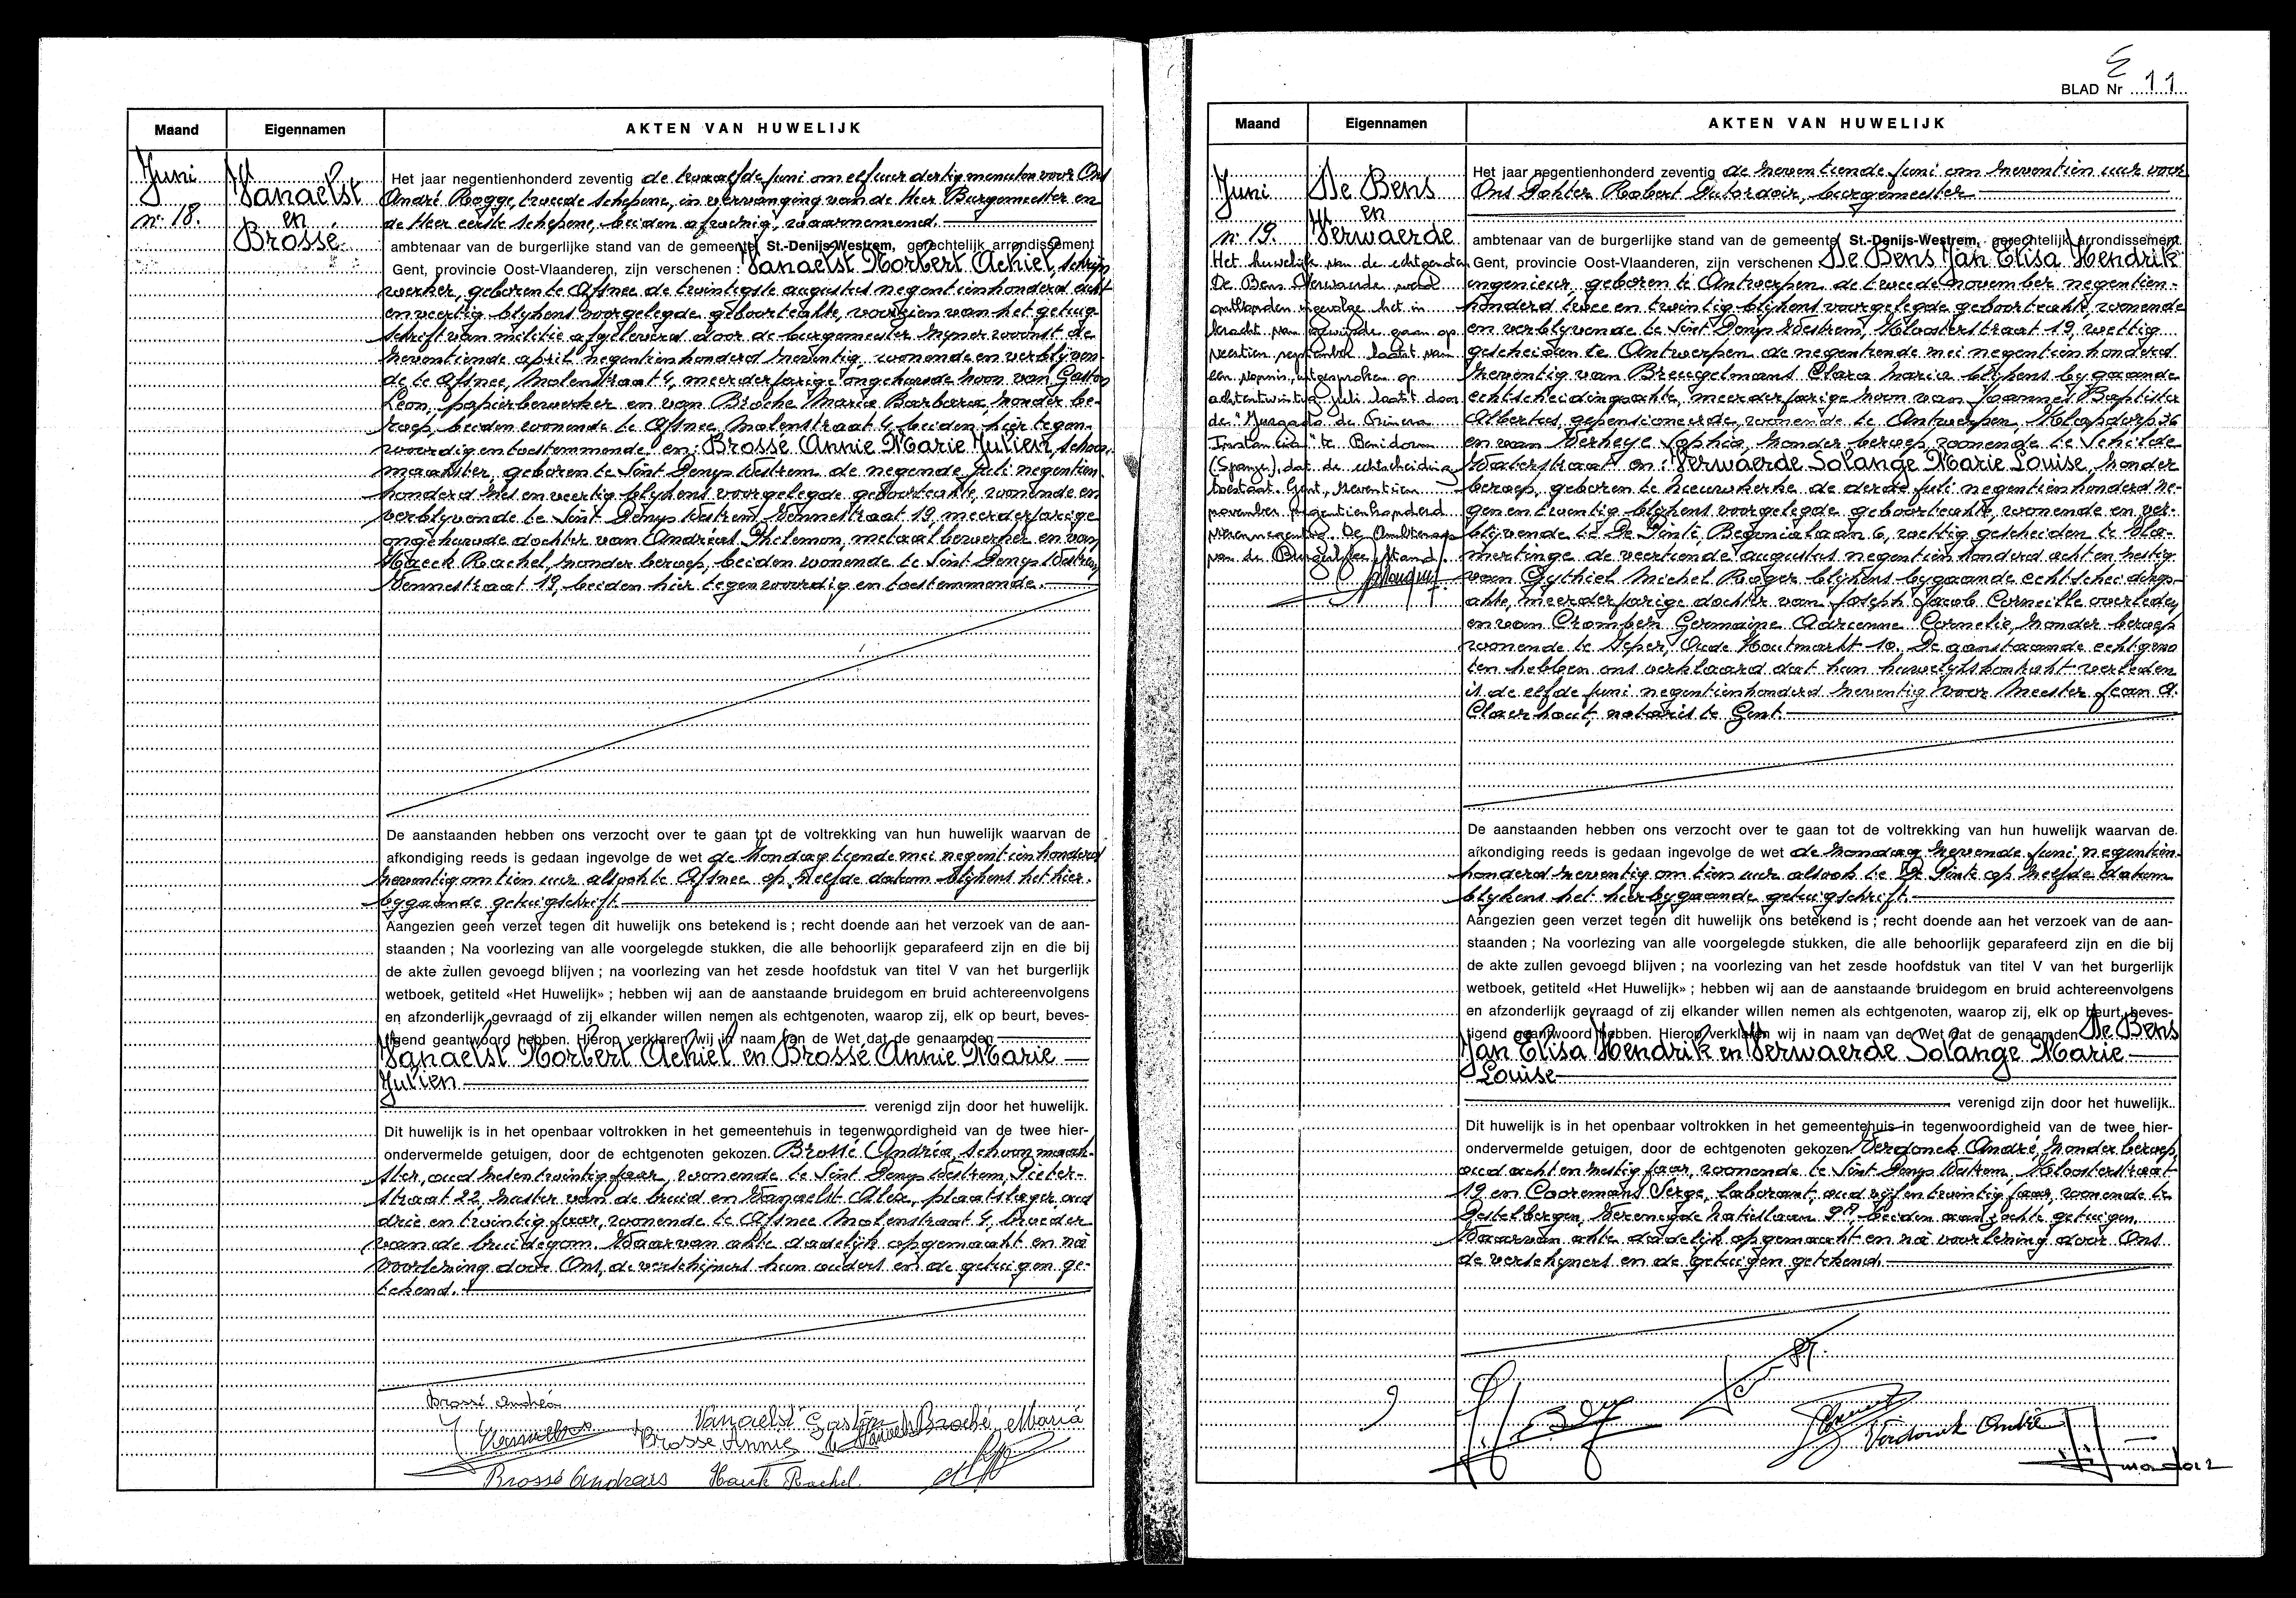 Maand Eigennamen AKTEN VAN HUWELIJK
Juni
n° 18.
Vanaelst
en
Brossé
Het jaar negentienhonderd zeventig de twaalfde juni om elf uur dertig minuten voor Ons
André Rogge, tweede schepene, in vervanging van de Heer Burgemeester en
de Heer eerste schepene, beiden afwezig, waarnemend.
ambtenaar van de burgerlijke stand van de gemeente St.-Denijs-Westrem, gerechtelijk arrondissement
Gent, provincie Oost-Vlaanderen, zijn verschenen : Vanaelst Norbert Achiel, schrijn
werker, geboren te Afsnee de twintigste augustus negentienhonderd acht
en veertig blijkens voorgelegde geboorteakte, voorzien van het getuig-
schrift van militie afgeleverd door de burgemeester zijner woonst de
zeventiende april negentienhonderd zeventig, wonende en verblijven-
de te Afsnee, Molenstraat 4, meerderjarige ongehuwde zoon van Gaston
Leon, papierbewerker en van Broché Maria Barbara, zonder be-
roep, beiden wonende te Afsnee, Molenstraat 4, beiden hier tegen-
woordig en toestemmende en : Brossé Annie Marie Julien, schoon
maakster, geboren te Sint Denys Westrem de negende juli negentien
honderd zes en veertig blijkens voorgelegde geboorteakte, wonende en
verblyvende te Sint Denys Westrem, Vennestraat 19, meerderjarige
ongehuwde dochter van Andréas Philemon, metaalbewerker en van
Haeck Rachel, zonder beroep, beiden wonende te Sint Denys Westrem
Vennestraat 19, beiden hier tegenwoordig en toestemmende.
De aanstaanden hebben ons verzocht over te gaan tot de voltrekking van hun huwelijk waarvan de
afkondiging reeds is gedaan ingevolge de wet de zondag tiende mei negentienhonderd
zeventig om tien uur alsook te Afsnee op zelfde datum blijkens het hier-
bygaande getuigschrift.
Aangezien geen verzet tegen dit huwelijk ons betekend is ; recht doende aan het verzoek van de aan-
staanden ; Na voorlezing van alle voorgelegde stukken, die alle behoorlijk geparafeerd zijn en die bij
de akte zullen gevoegd blijven ; na voorlezing van het zesde hoofdstuk van titel V van het burgerlijk
wetboek, getiteld «Het Huwelijk» ; hebben wij aan de aanstaande bruidegom en bruid achtereenvolgens
en afzonderlijk gevraagd of zij elkander willen nemen als echtgenoten, waarop zij, elk op beurt, beves-
tigend geantwoord hebben. Hierop verklaren wij in naam van de Wet dat de genaamden
Vanaelst Norbert Achiel en Brossé Annie Marie
Julien
verenigd zijn door het huwelijk.
Dit huwelijk is in het openbaar voltrokken in het gemeentehuis in tegenwoordigheid van de twee hier-
ondervermelde getuigen, door de echtgenoten gekozen Brossé Andréa, schoonmaak-
ster, oud zes en twintig jaar, wonende te Sint Denys Westrem, Pieter-
straat 22, zuster van de bruid en Vanaelst Alex, plaatslager, oud
drie en twintig jaar, wonende te Afsnee Molenstraat 4, broeder
van de bruidegom. Waarvan akte dadelijk opgemaakt en na
voorlezing door Ons, de verschijners hun ouders en de getuigen ge-
tekend.
Brossé Andréa
Vanaelst Gaston Broché Maria
Brosse Annie
Brossé Andreas Haeck Rachel.
BLAD Nr 11
Maand Eigennamen AKTEN VAN HUWELIJK
Juni
n° 19.
De Bens
en
Verwaerde
Het huwelijk van de echtgenoten
De Bens Verwaerde werd
ontbonden ingevolge het in
kracht van gewijsde gaan op
veertien september laatst van
een vonnis uitgesproken op
achtentwintig juli laatst door
de "Juzgado de Primera
Instantia" te Benidorm
(Spanje), dat de echtscheiding
toestaat. Gent, zeventien
november negentienhonderd
De Ambtenaar
van de Burgerlijke Stand.
Het jaar negentienhonderd zeventig de zeventiende juni om zeventien uur voor
Ons Dokter Robert Dutordoir, burgemeester
ambtenaar van de burgerlijke stand van de gemeente St.-Denijs-Westrem, gerechtelijk arrondissement
Gent, provincie Oost-Vlaanderen, zijn verschenen De Bens Jan Elisa Hendrik
ingenieur, geboren te Antwerpen de tweede november negentien-
honderd twee en twintig blijkens voorgelegde geboorteakte, wonende
en verblyvende te Sint Denys Westrem, Kloosterstraat 19, wettig
gescheiden te Antwerpen de negentiende mei negentienhonderd
zeventig van Breugelmans Clara Maria blijkens bygaande
echtscheidingsakte, meerderjarige zoon van Joannes Baptista
Albertus, gepensioneerde, wonende te Antwerpen, Klapdorp 36
en van Verheye Sophia, zonder beroep, wonende te Schilde
Waterstraat en : Verwaerde Solange Marie Louise, zonder
beroep, geboren te Nieuwkerke de derde juli negentienhonderd ne-
gen en twintig blijkens voorgelegde geboorteakte, wonende en ver-
blijvende te De Pinte, Begonialaan 6, wettig gescheiden te Vla-
mertinge de veertiende augustus negentienhonderd acht en zestig
van Gythiel Michel Roger blijkens bygaande echtscheidings-
akte, meerderjarige dochter van Joseph Jacob Corneille overleden
en van Crombez Germaine Adrienne Cornelie, zonder beroep
wonende te Ieper, Oude Houtmarkt 10. De aanstaande echtgeno
ten hebben ons verklaard dat hun huwelijkskontrakt verleden
is de elfde juni negentienhonderd zeventig voor Meester Jean A.
Claerhout, notaris te Gent.
De aanstaanden hebben ons verzocht over te gaan tot de voltrekking van hun huwelijk waarvan de
afkondiging reeds is gedaan ingevolge de wet de zondag zevende juni negentien-
honderd zeventig om tien uur alsook te De Pinte op zelfde datum
blijkens het hierbygaande getuigschrift.
Aangezien geen verzet tegen dit huwelijk ons betekend is ; recht doende aan het verzoek van de aan-
staanden ; Na voorlezing van alle voorgelegde stukken, die alle behoorlijk geparafeerd zijn en die bij
de akte zullen gevoegd blijven ; na voorlezing van het zesde hoofdstuk van titel V van het burgerlijk
wetboek, getiteld «Het Huwelijk» ; hebben wij aan de aanstaande bruidegom en bruid achtereenvolgens
en afzonderlijk gevraagd of zij elkander willen nemen als echtgenoten, waarop zij, elk op beurt, beves-
tigend geantwoord hebben. Hierop verklaren wij in naam van de Wet dat de genaamden De Bens
Jan Elisa Hendrik en Verwaerde Solange Marie
Louise
verenigd zijn door het huwelijk.
Dit huwelijk is in het openbaar voltrokken in het gemeentehuis in tegenwoordigheid van de twee hier-
ondervermelde getuigen, door de echtgenoten gekozen Verdonck André, zonder beroep,
oud acht en zestig jaar, wonende te Sint Denys Westrem, Kloosterstraat
19 en Cooremans Serge, laborant, oud vijf en twintig jaar, wonende te
Destelbergen, Verenigde Natieslaan 9A, beiden aangezochte getuigen.
Waarvan akte dadelijk opgemaakt en na voorlezing door Ons
de verschijners en de getuigen getekend.
Verdonck André